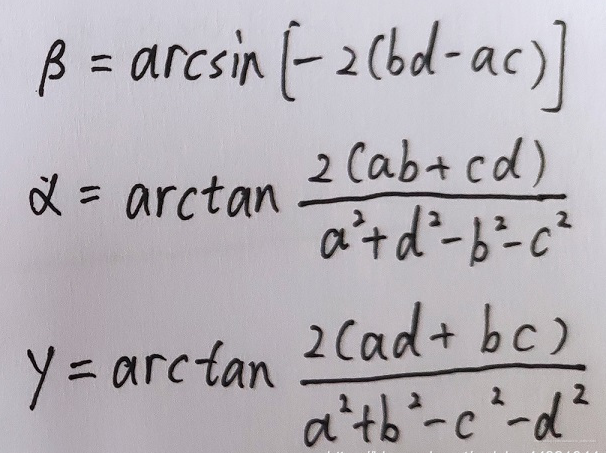 β = arcsin [- 2(bd-ac)]
α = arctan 2(ab+cd) / a²+d²-b²-c²
y = arctan 2(ad+bc) / a²+b²-c²-d²